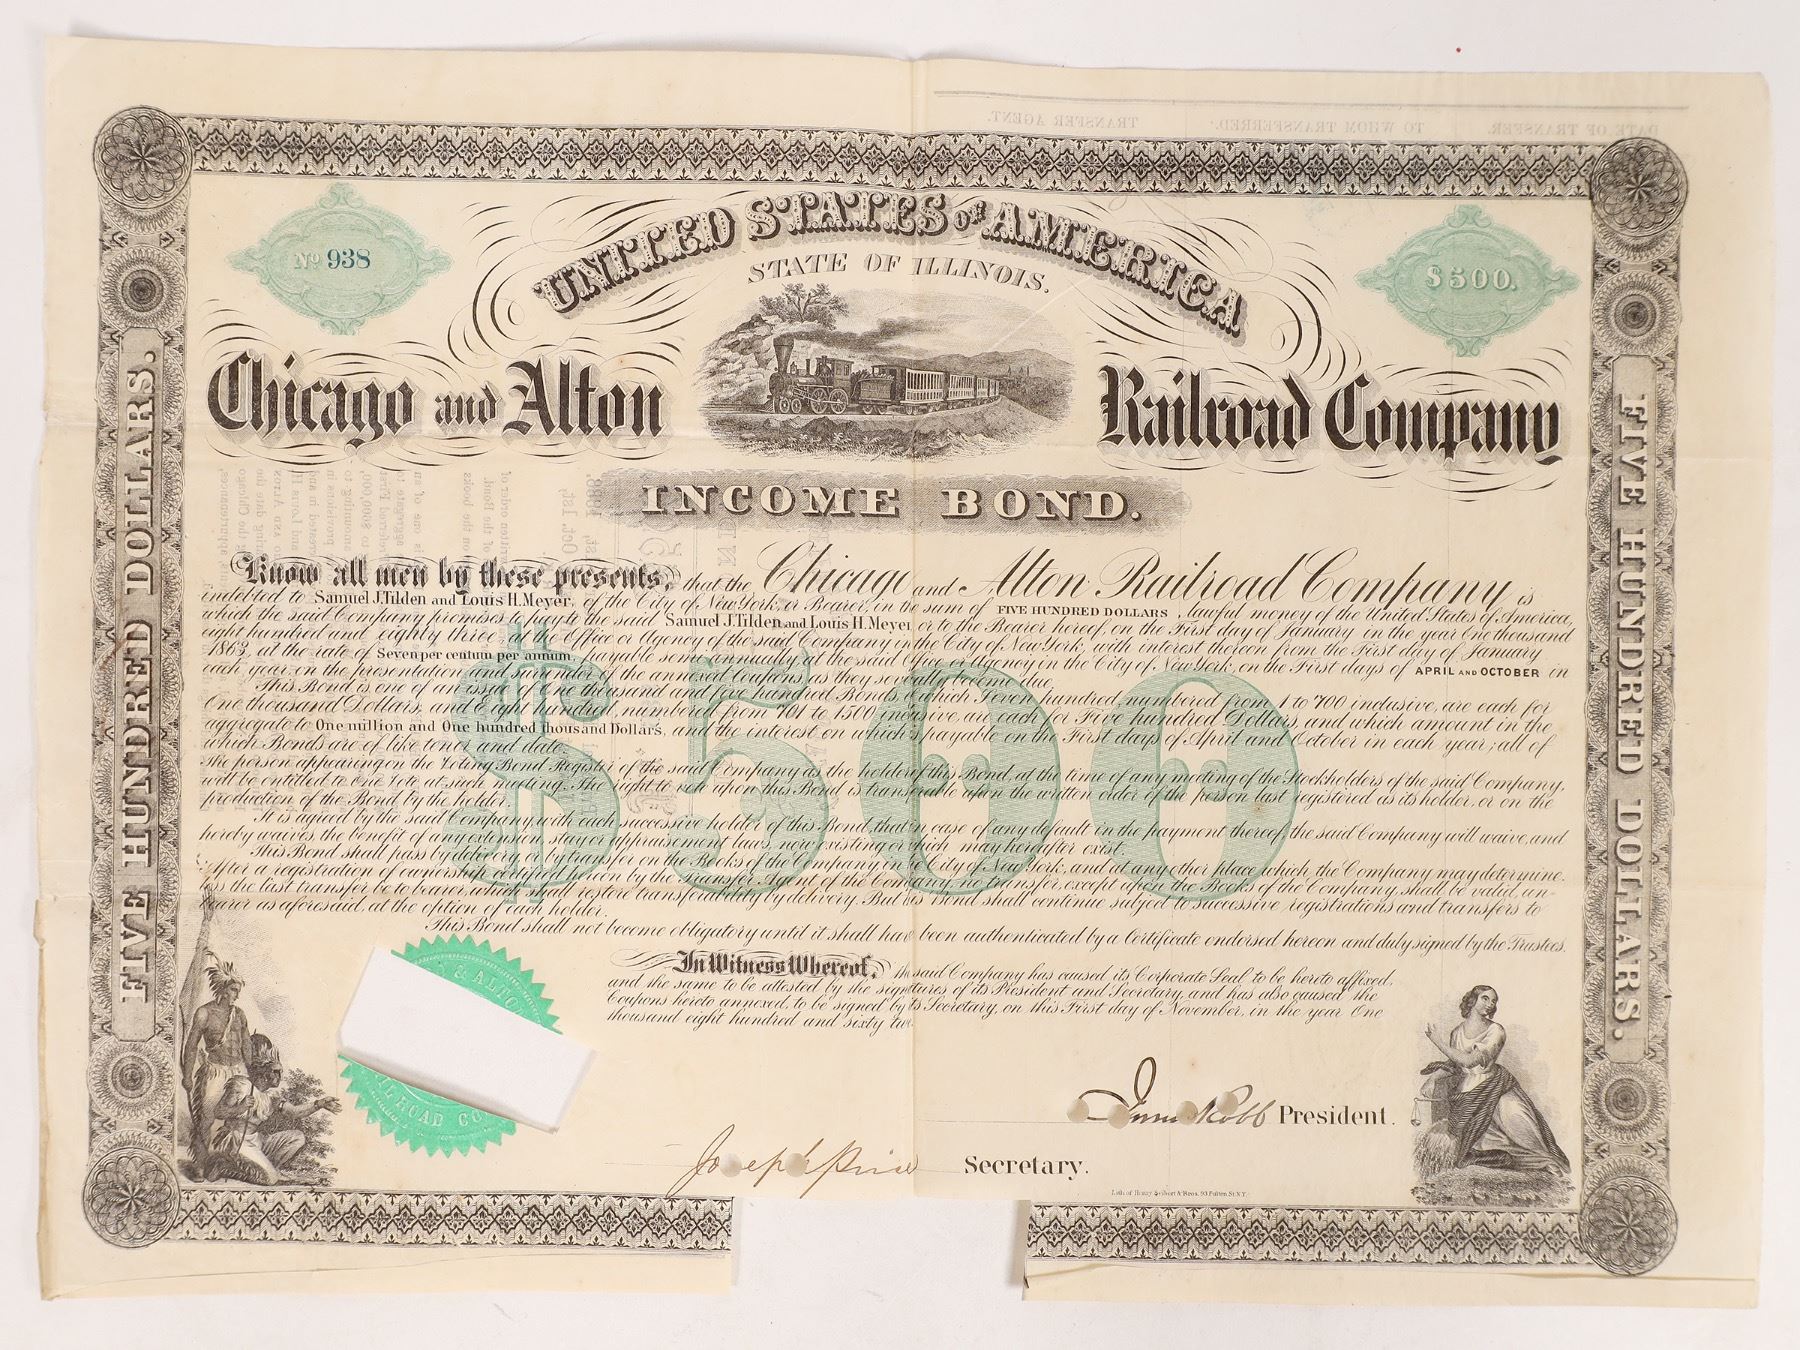 DATE OF TRANSFER. TO WHOM TRANSFERRED. TRANSFER AGENT.
UNITED STATES OF AMERICA
STATE OF ILLINOIS.
No 938
$500.
Chicago and Alton Railroad Company
INCOME BOND.
FIVE HUNDRED DOLLARS.
FIVE HUNDRED DOLLARS.
$500
Know all men by these presents, that the Chicago and Alton Railroad Company is
indebted to Samuel J. Tilden and Louis H. Meyer, of the City of New York, or Bearer, in the sum of FIVE HUNDRED DOLLARS, lawful money of the United States of America,
which the said Company promises to pay to the said Samuel J. Tilden and Louis H. Meyer or to the Bearer hereof, on the First day of January in the year One thousand
eight hundred and eighty three at the Office or Agency of the said Company in the City of New York, with interest thereon from the First day of January
1863, at the rate of Seven per centum per annum, payable semi annually, at the said Office or Agency in the City of New York, on the First days of APRIL AND OCTOBER in
each year, on the presentation and surrender of the annexed Coupons as they severally become due.
This Bond is one of an issue of One thousand and five hundred Bonds of which Seven hundred, numbered from 1 to 700 inclusive, are each for
One thousand Dollars, and Eight hundred, numbered from 701 to 1500 inclusive, are each for Five hundred Dollars, and which amount in the
aggregate to One million and One hundred thousand Dollars, and the interest on which is payable on the First days of April and October in each year; all of
which Bonds are of like tenor and date.
The person appearing on the Voting Bond Register of the said Company as the holder of this Bond, at the time of any meeting of the Stockholders of the said Company,
will be entitled to One Vote at such meeting. The right to vote upon this Bond is transferable upon the written order of the person last registered as its holder, or on the
production of the Bond by the holder.
It is agreed by the said Company, with each successive holder of this Bond, that in case of any default in the payment thereof, the said Company will waive and
hereby waives the benefit of any extension, stay or appraisement laws, now existing or which may hereafter exist.
This Bond shall pass by delivery or by transfer on the Books of the Company in the City of New York, and at any other place which the Company may determine.
After a registration of ownership certified hereon by the Transfer Agent of the Company, no transfer, except upon the Books of the Company shall be valid, un-
less the last transfer be to bearer, which shall restore transferability by delivery. But this Bond shall continue subject to successive registrations and transfers to
bearer as aforesaid, at the option of each holder.
This Bond shall not become obligatory until it shall have been authenticated by a Certificate endorsed hereon and duly signed by the Trustees.
In Witness Whereof, the said Company has caused its Corporate Seal to be hereto affixed,
and the same to be attested by the signatures of its President and Secretary, and has also caused the
Coupons hereto annexed, to be signed by its Secretary, on this First day of November, in the year One
thousand eight hundred and sixty two
& ALTO
ILROAD CO
President.
Joseph Price Secretary.
Lith. of Henry Seibert & Bros. 93 Fulton St. N.Y.